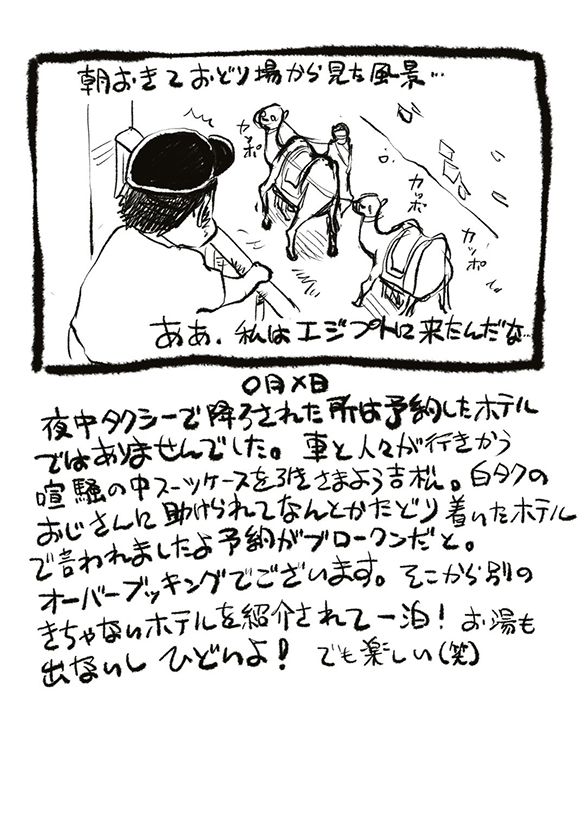 朝おきておどり場から見た風景…
カッポ
カッポ
カッポ
ああ、私はエジプトに来たんだな…
〇月×日
夜中タクシーで降ろされた所は予約したホテル
ではありませんでした。車と人々が行きかう
喧騒の中スーツケースを引きさまよう吉松。白タクの
おじさんに助けられてなんとかたどり着いたホテル
で言われましたよ予約がブロークンだと。
オーバーブッキングでございます。そこから別の
きちゃないホテルを紹介されて一泊！お湯も
出ないしひどいよ！でも楽しい(笑)